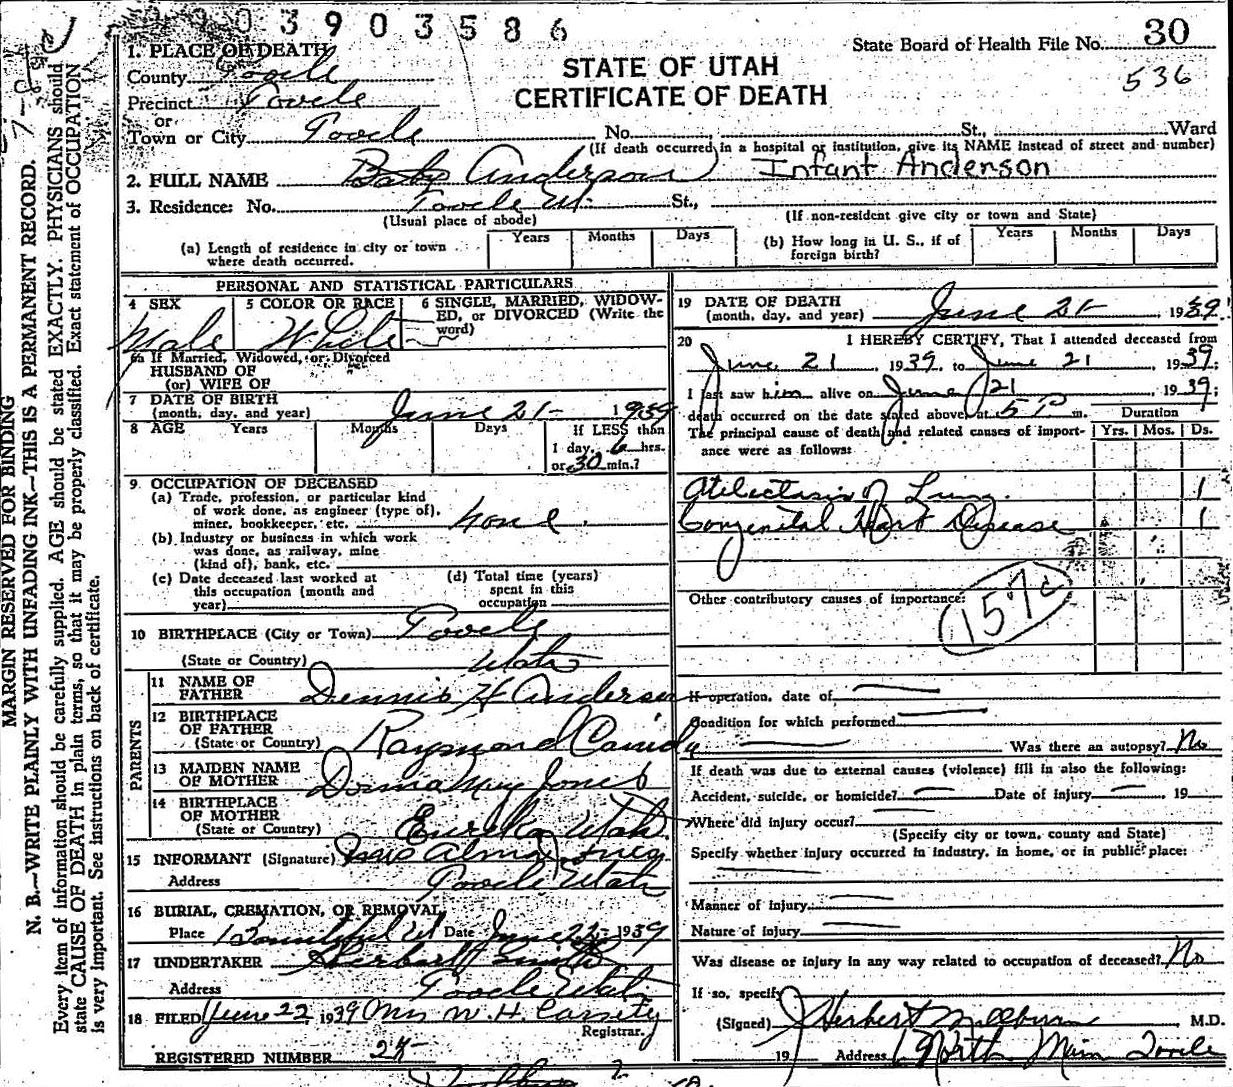 3903586
State Board of Health File No. 30
536
STATE OF UTAH
CERTIFICATE OF DEATH
1. PLACE OF DEATH
County Tooele
Precinct Tooele
or
Town or City Tooele No. St., Ward
(If death occurred in a hospital or institution, give its NAME instead of street and number)
2. FULL NAME Baby Anderson Infant Anderson
3. Residence: No. Tooele Ut. St.,
(Usual place of abode) (If non-resident give city or town and State)
(a) Length of residence in city or town where death occurred. Years Months Days
(b) How long in U. S., if of foreign birth? Years Months Days
PERSONAL AND STATISTICAL PARTICULARS
4 SEX Male
5 COLOR OR RACE White
6 SINGLE, MARRIED, WIDOWED, or DIVORCED (Write the word)
If Married, Widowed, or Divorced
HUSBAND OF
(or) WIFE OF
7 DATE OF BIRTH
(month, day, and year) June 21 1939
8 AGE Years Months Days If LESS than
1 day, 6 hrs.
or 30 min.?
9 OCCUPATION OF DECEASED
(a) Trade, profession, or particular kind
of work done, as engineer (type of),
miner, bookkeeper, etc. None
(b) Industry or business in which work
was done, as railway, mine
(kind of), bank, etc.
(c) Date deceased last worked at
this occupation (month and
year)
(d) Total time (years)
spent in this
occupation
10 BIRTHPLACE (City or Town) Tooele
(State or Country) Utah
PARENTS
11 NAME OF FATHER Dennis H Anderson
12 BIRTHPLACE OF FATHER
(State or Country) Raymond Canada
13 MAIDEN NAME OF MOTHER Donna May Jones
14 BIRTHPLACE OF MOTHER
(State or Country) Eureka Utah
15 INFORMANT (Signature) Mrs Alma Jones
Address Tooele Utah
16 BURIAL, CREMATION, OR REMOVAL
Place Bountiful Ut Date June 22 1939
17 UNDERTAKER Herbert Smith
Address Tooele Utah
18 FILED June 22 1939 Mrs W. H. Cassity
Registrar.
REGISTERED NUMBER
19 DATE OF DEATH
(month, day, and year) June 21 1939
20 I HEREBY CERTIFY, That I attended deceased from
June 21, 1939, to June 21, 1939;
I last saw him alive on June 21, 1939;
death occurred on the date stated above, at 5 P m.
Duration
The principal cause of death and related causes of importance were as follows:
Yrs. Mos. Ds.
Atelectasis of Lung. 1
Congenital Heart Disease 1
Other contributory causes of importance:
157c
If operation, date of
Condition for which performed
Was there an autopsy? No
If death was due to external causes (violence) fill in also the following:
Accident, suicide, or homicide? Date of injury, 19
Where did injury occur?
(Specify city or town, county and State)
Specify whether injury occurred in industry, in home, or in public place:
Manner of injury
Nature of injury
Was disease or injury in any way related to occupation of deceased? No
If so, specify
(Signed) J Herbert Millburn M.D.
19 Address North Main Tooele
MARGIN RESERVED FOR BINDING
N. B.—WRITE PLAINLY WITH UNFADING INK—THIS IS A PERMANENT RECORD.
Every item of information should be carefully supplied. AGE should be stated EXACTLY. PHYSICIANS should
state CAUSE OF DEATH in plain terms, so that it may be properly classified. Exact statement of OCCUPATION
is very important. See instructions on back of certificate.